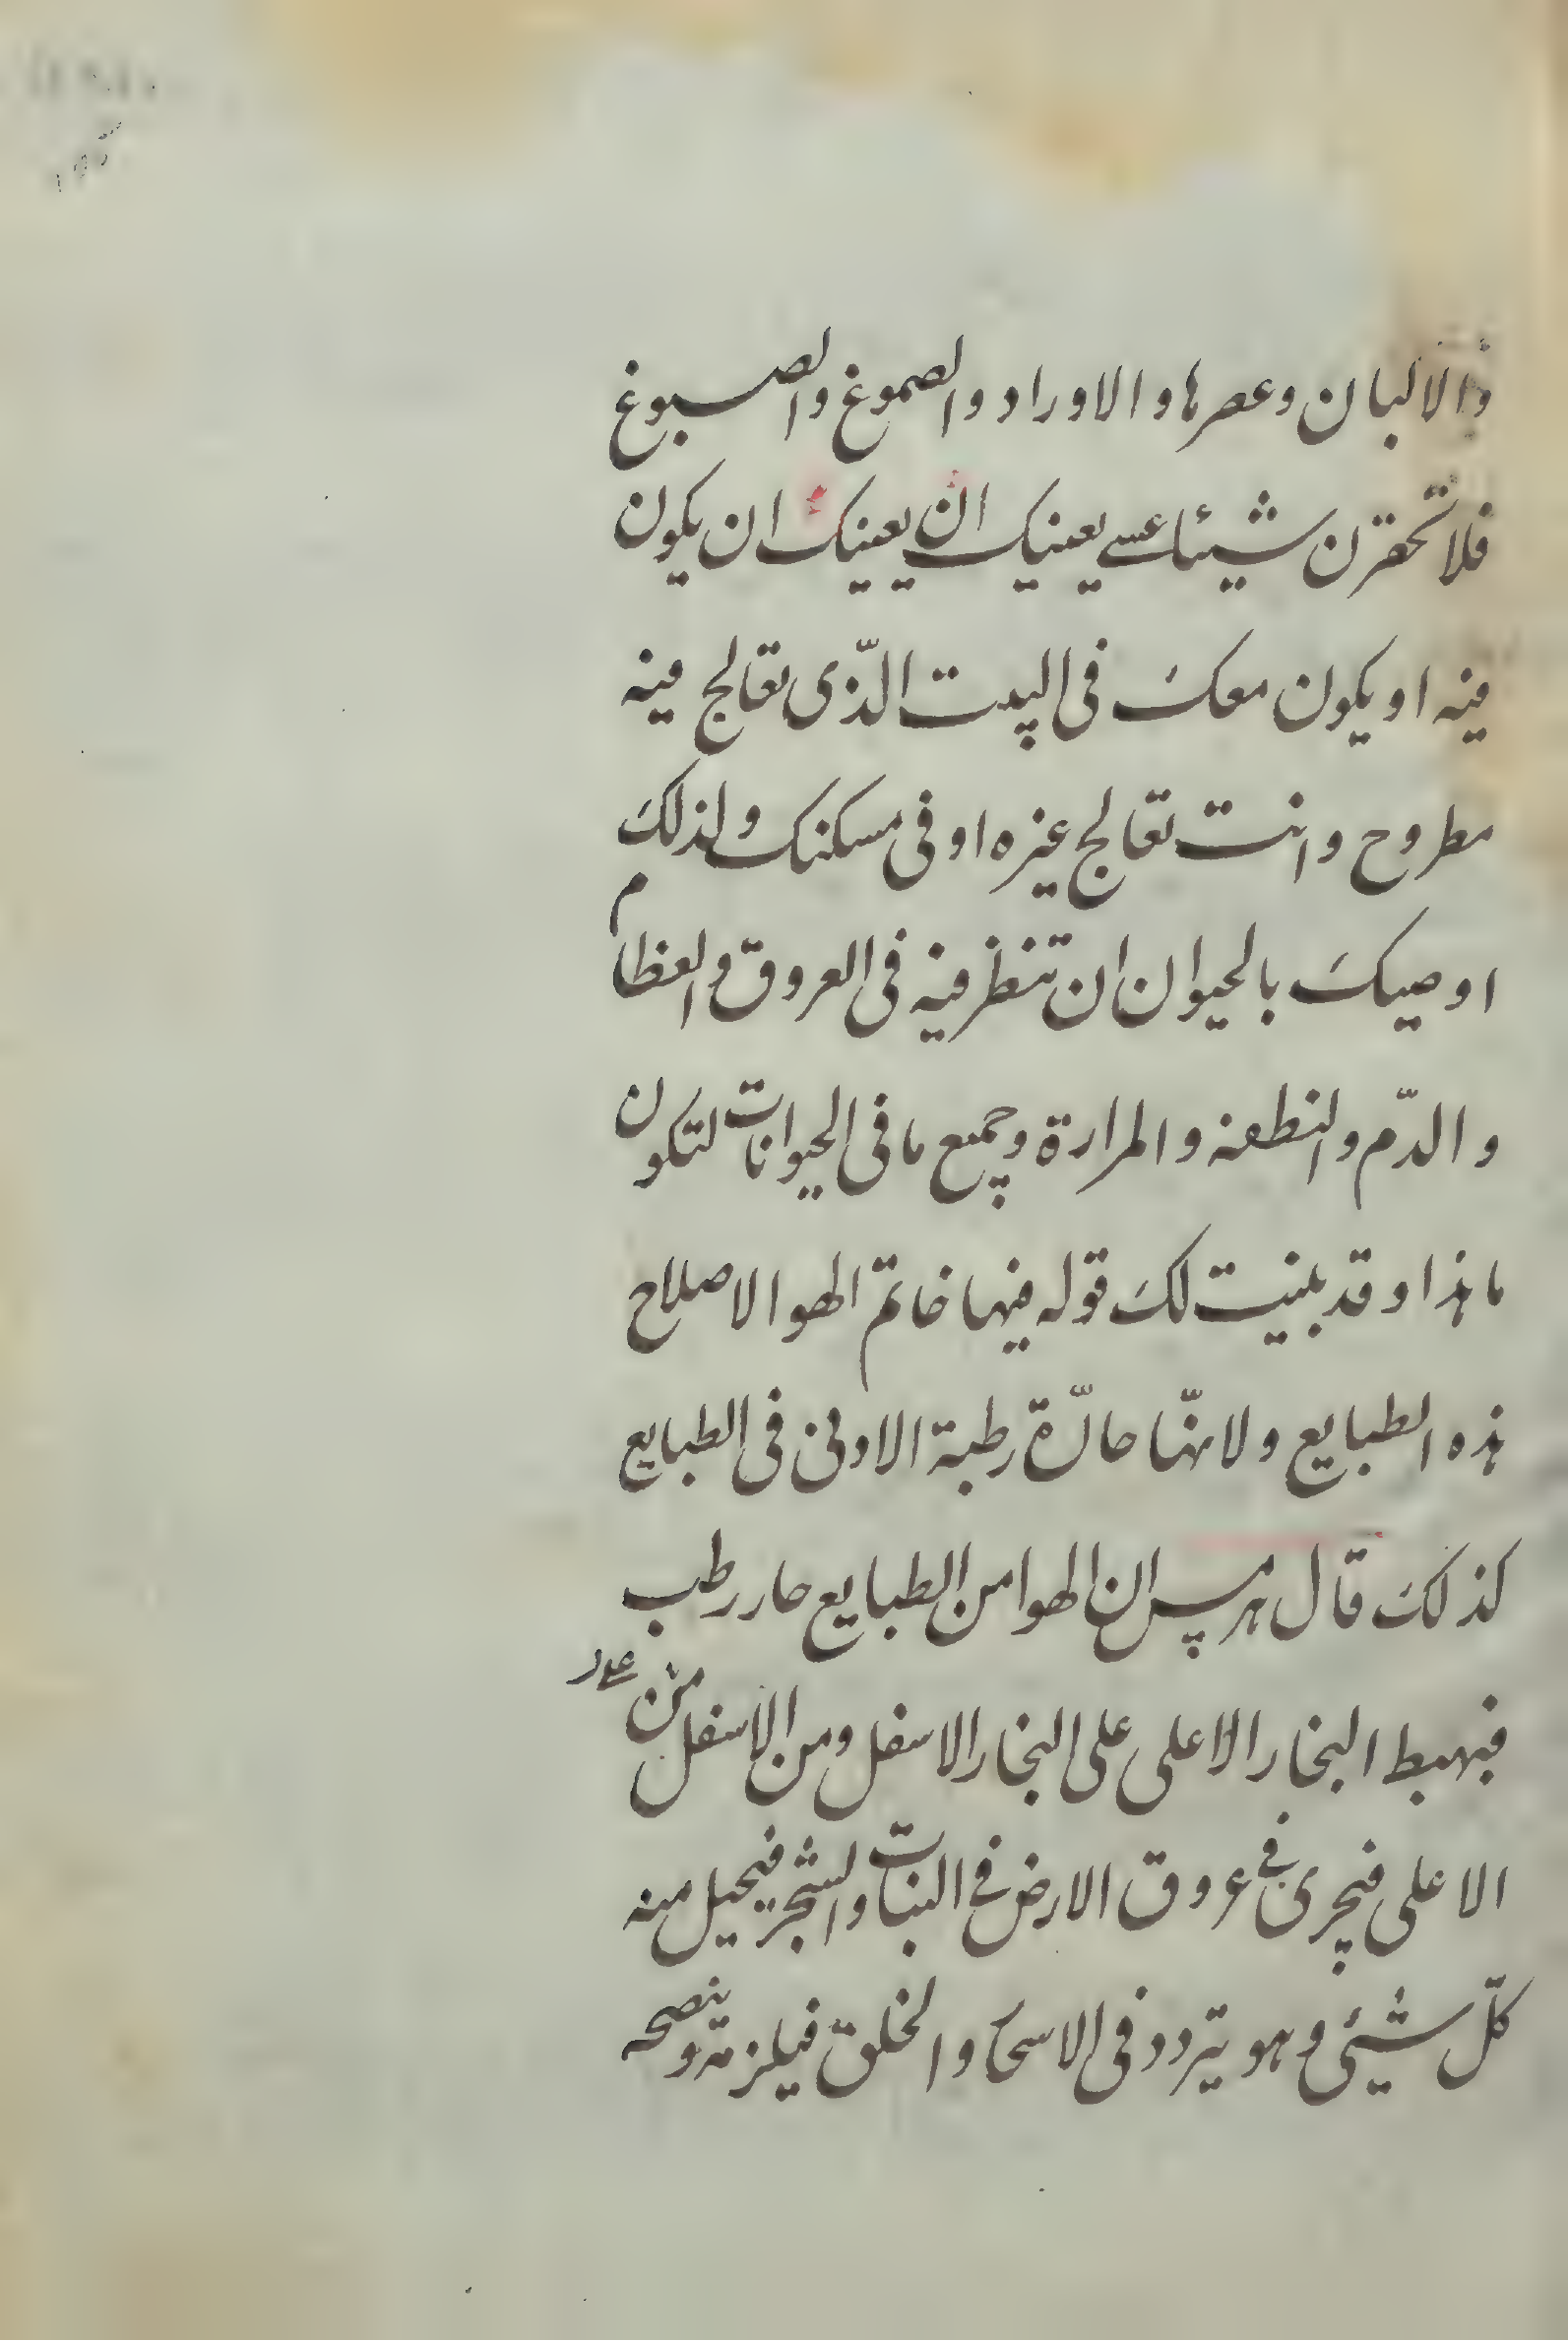 والالبان وعصرها والاوراد والصموغ والصبوغ
فلا تحقرن شيئا عسى يعينيك ان يعينيك ان يكون
فيه او يكون معك فى البيت الّذى تعالج فيه
مطروح وانت تعالج غيره او فى مسكنك ولذلك
اوصيك بالحيوان ان تنظر فيه فى العروق والعظام
والدّم والنطفه والمرارة وجميع ما فى الحيوانات لتكون
ماهذا وقد بينت لك قوله فيها خاتم الهوا لاصلاح
هذه الطبايع ولانهّا حارّة رطبة الاولى فى الطبايع
كذلك قال هرمس ان الهوا من الطبايع حار رطب
فيهبط البخار الاعلى على البخار الاسفل ومن الاسفل من
الاعلى فيجرى فى عروق الارض فى النبات والشجر فيحيل منه
كلّ شيئى وهو يتردد فى الاسحار والخلق فيلزمة وينضحه